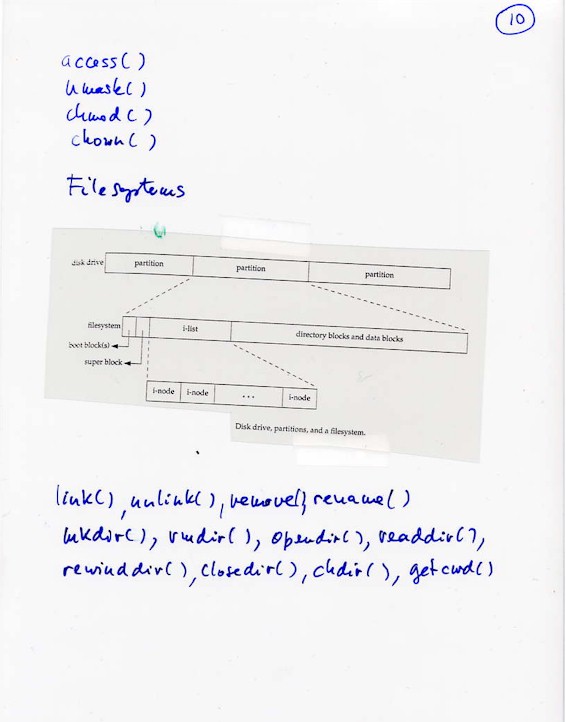 10
access()
umask()
chmod()
chown()
Filesystems
disk drive partition partition partition
filesystem i-list directory blocks and data blocks
boot block(s)
super block
i-node i-node ... i-node
Disk drive, partitions, and a filesystem.
link(), unlink(), remove(), rename()
mkdir(), rmdir(), opendir(), readdir(),
rewinddir(), closedir(), chdir(), getcwd()